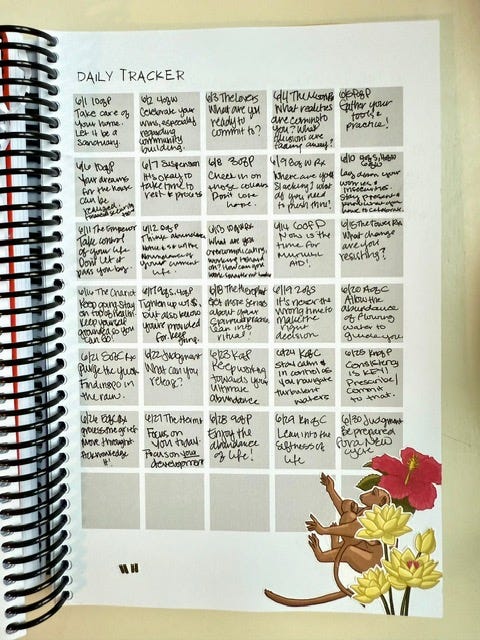 DAILY TRACKER
6/1 10ofP
Take care of
your home.
Let it be a
sanctuary.
6/2 4ofW
Celebrate your
wins, especially
regarding
community
building.
6/3 The Lovers
What are you
ready to
commit to?
6/4 The Moon
What realities
are coming to
you? What
illusions are
fading away?
Gather your
tools &
practice!
6/6 10ofP
Your dreams
for the house
can be
realized
6/7 Suspension
It's okay to
take time to
rest & process
6/8 3ofP
Check in on
those
Don't lose
hope.
6/9 8ofW Rx
Where are you
slacking? What
do you need
to push thru!
6/10
Lay down your
worries &
insecurities
Stay present &
6/11 The Emperor
Take control
of your life
Don't let it
pass you by.
6/12
Think abundance
your current
life.
6/13
What are you
overcomplicating
6/14 6ofP
Now is the
time for
mutual AID!
6/15 The Tower Rx
What change
are you
resisting?
6/16 The Chariot
Keep going. Stay
on top of
Keep yourself
grounded so you
can GO!
6/17
Tighten up w/ $,
but also know
you're provided
for keep
going.
6/18 The Hierophant
Get more serious
about your
Spiritual practice
lean into
ritual!
6/19 2ofS
it's never the
wrong time to
make the
right
decision
6/20 AofC
Allow the
abundance
of flowing
water to
guide you
6/21 5ofC Rx
Purge the yuck
Finding joy in
the ruin.
6/22 Judgment
What can you
release?
6/23
Keep working
towards your
ultimate
abundance
6/24 KofC
Stay calm &
in control as
you navigate
turbulent
waters
6/25 KnofP
Consistency
is KEY!
Prescribe/
Commit
to that.
6/26
grief
move through it
Acknowledge
it!
6/27 The Hermit
Focus on
you today.
Focus on your
development
6/28 9ofP
Enjoy the
abundance
of life!
6/29 KnofC
Lean into the
softness of
life
6/30 Judgment
Be prepared
for a New
cycle